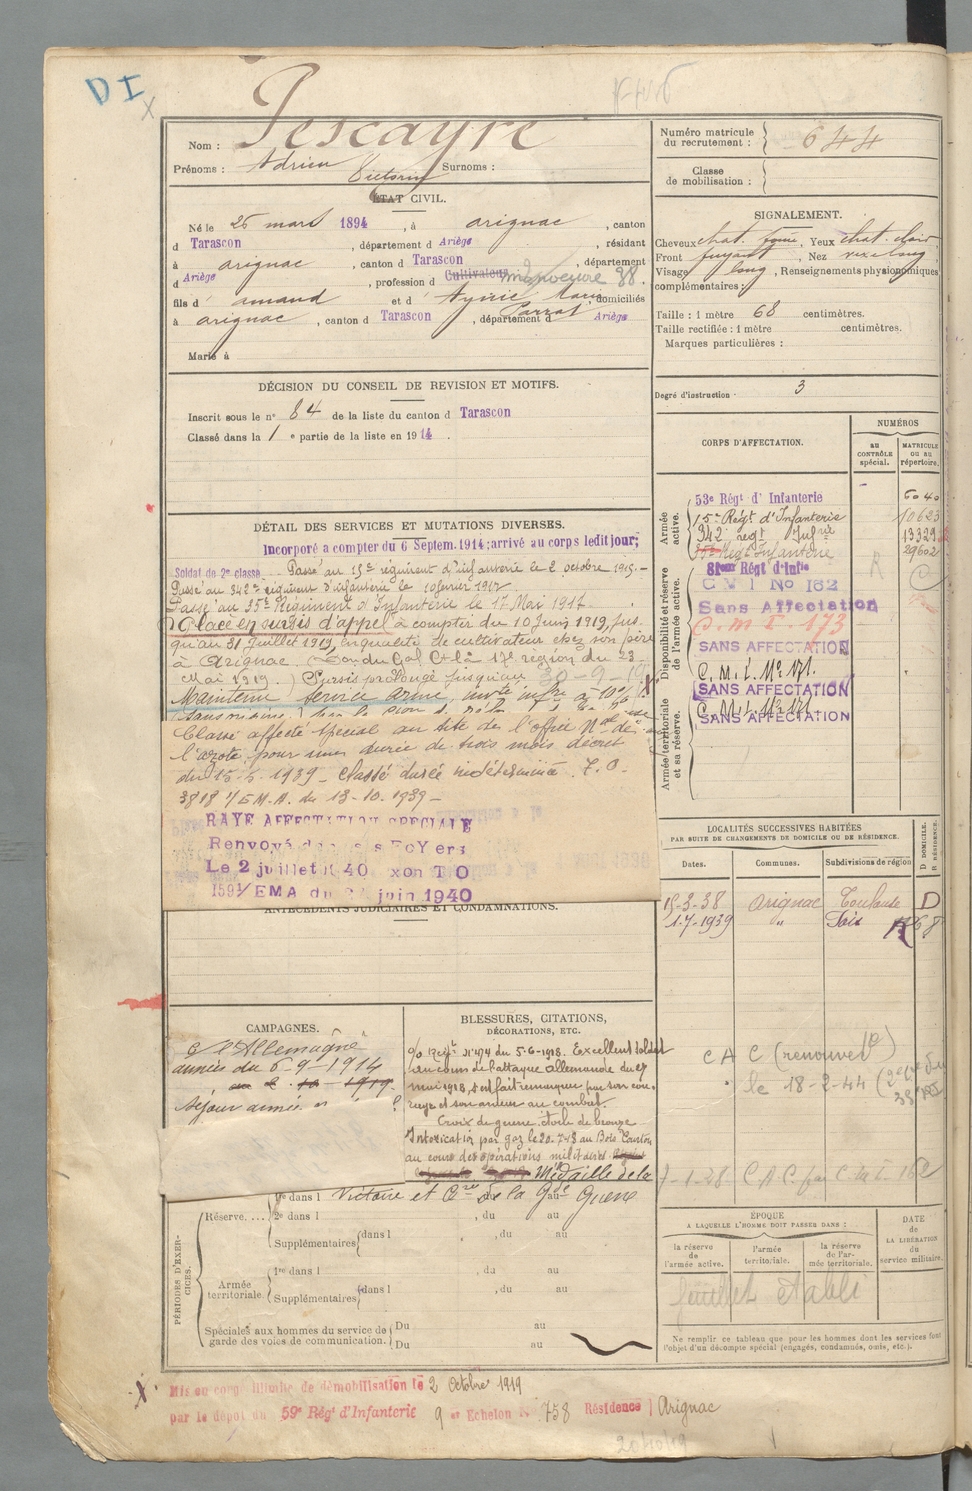 DI
Nom : Pescayre
Numéro matricule du recrutement : 644
Prénoms : Adrien Victorin Surnoms :
Classe de mobilisation :
ÉTAT CIVIL.
Né le 25 mars 1894, à arignac, canton
d Tarascon, département d Ariège, résidant
à arignac, canton d Tarascon, département
d Ariège, profession d Cultivateur manoeuvre 38.
fils d' amand et d' domiciliés
à arignac, canton d Tarascon, département d Ariège
Marié à
SIGNALEMENT.
Cheveux chat. foncé, Yeux chat. clair,
Front fuyant, Nez
Visage long, Renseignements physionomiques
complémentaires :
Taille : 1 mètre 68 centimètres.
Taille rectifiée : 1 mètre centimètres.
Marques particulières :
DÉCISION DU CONSEIL DE REVISION ET MOTIFS.
Inscrit sous le n° 84 de la liste du canton d Tarascon
Classé dans la 1 e partie de la liste en 1914.
Degré d'instruction · 3
CORPS D'AFFECTATION.
NUMÉROS
AU CONTRÔLE spécial.
MATRICULE ou au répertoire.
Armée active.
53e Régt d' Infanterie 6040
15e Régt d'Infanterie 10623
342 regt Infrie 13329
35e Régt Infanterie 29602
Disponibilité et réserve de l'armée active.
81eme Régt d'Infie
C M I No 162
Sans Affectation
C.M.I. 173
SANS AFFECTATION
C.M.I. No 171.
Armée territoriale et sa réserve.
SANS AFFECTATION
C.M.I. No 171.
SANS AFFECTATION
DÉTAIL DES SERVICES ET MUTATIONS DIVERSES.
Incorporé a compter du 6 Septem. 1914; arrivé au corps ledit jour;
Soldat de 2e classe Passé au 15e régiment d'infanterie le 2 octobre 1915.-
Passé au 342e régiment d'infanterie le 10 février 1917.
Passé au 35e Régiment d'Infanterie le 17 Mai 1917.
Placé en sursis d'appel à compter du 10 Juin 1919, jus-
qu'au 31 Juillet 1919, en qualité de cultivateur chez son père
à Arignac. du Gal Ct la 17e région du 23
Mai 1919.) Sursis prolongé jusqu'au 30-9-19
Maintenu service armé, à 10%
Classé affecté spécial au titre de l'office Nal de
l'azote, pour une durée de trois mois, décret
du 15-5-1939 - classé durée indéterminée. T.O.
3818 1/E M.A. du 13-10-1939 -
RAYE AFFECTATION SPECIALE
Renvoyé dans ses Foyers
Le 2 juillet 1940 T O
1591/EMA du juin 1940
ANTÉCÉDENTS JUDICIAIRES ET CONDAMNATIONS.
LOCALITÉS SUCCESSIVES HABITÉES
PAR SUITE DE CHANGEMENTS DE DOMICILE OU DE RÉSIDENCE.
Dates. Communes. Subdivisions de région
D DOMICILE. R RÉSIDENCE.
15-3-38 Arignac Toulouse D
1-7-1939 "
C A C (renouvelé)
le 18-2-44
CAMPAGNES.
C l'Allemagne
année du 6-9-1914
BLESSURES, CITATIONS,
DÉCORATIONS, ETC.
O/o Régt N° 474 du 5-6-1918. Excellent soldat
au cours de l'attaque allemande du 27
mai 1918, s'est fait remarquer par son cou-
rage et son ardeur au combat.
Croix de guerre, étoile de bronze
Intoxication par gaz le 20-7-18 au Bois
au cours des opérations militaires
Médaille de la
Victoire et de la Gde Guerre
PÉRIODES D'EXERCICES.
Réserve.... 1re dans l du au
2e dans l , du au
Supplémentaires dans l , du au
Armée territoriale. 1re dans l , du au
Supplémentaires dans l , du au
Spéciales aux hommes du service de garde des voies de communication. Du au
Du au
ÉPOQUE
A LAQUELLE L'HOMME DOIT PASSER DANS :
la réserve de l'armée active. l'armée territoriale. la réserve de l'armée territoriale.
DATE de LA LIBÉRATION du service militaire.
feuillet établi
Ne remplir ce tableau que pour les hommes dont les services font
l'objet d'un décompte spécial (engagés, condamnés, omis, etc.).
Mis en congé illimité de démobilisation le 2 Octobre 1919
par le dépôt du 59e Régt d'Infanterie 9 e Echelon N° 758 Résidence Arignac